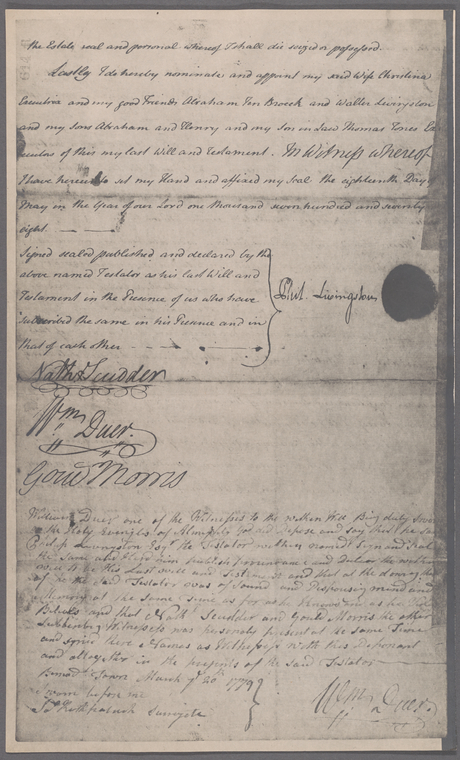 the Estate, real and personal whereof I shall die seized or possessed.
Lastly I do hereby nominate and appoint my said Wife Christina
Executrix and my good Friends Abraham Ten Broeck and Walter Livingston
and my Sons Abraham and Henry and my Son in Law Thomas Jones Ex
ecutors of this my last Will and Testament. In Witness whereof
I have hereunto set my Hand and affixed my Seal the eighteenth Day of
May in the Year of our Lord one thousand seven hundred and seventy
eight
Signed sealed published and declared by the
above named Testator as his last Will and
Testament in the Presence of us who have
subscribed the same in his Presence and in
that of each other
Phil. Livingston
Nath'l Scudder
Wm Duer.
Gouv Morris
William Duer one of the Witnesses to the within Will Being duly Sworn
on the Holy Evangels of Almighty God did depose and say that he saw
Philip Livingston Esqr the Testator within named Sign and Seal
the same and heard him publish pronounce and Declare the within
to be his Last Will and Testament and that at the doing there
of he the said Testator was of Sound and Disposing mind and
Memory at the same time as far as he knows and as he
Believes and that Nathl Scudder and Gouv Morris the other
Subscribing Witnesses was personally present at the same Time
and signed there Names as Witnesses with this Deponant
and altogether in the presents of the said Testator
March ye 20th 1779
Sworn before me
Surrogate
Wm Duer